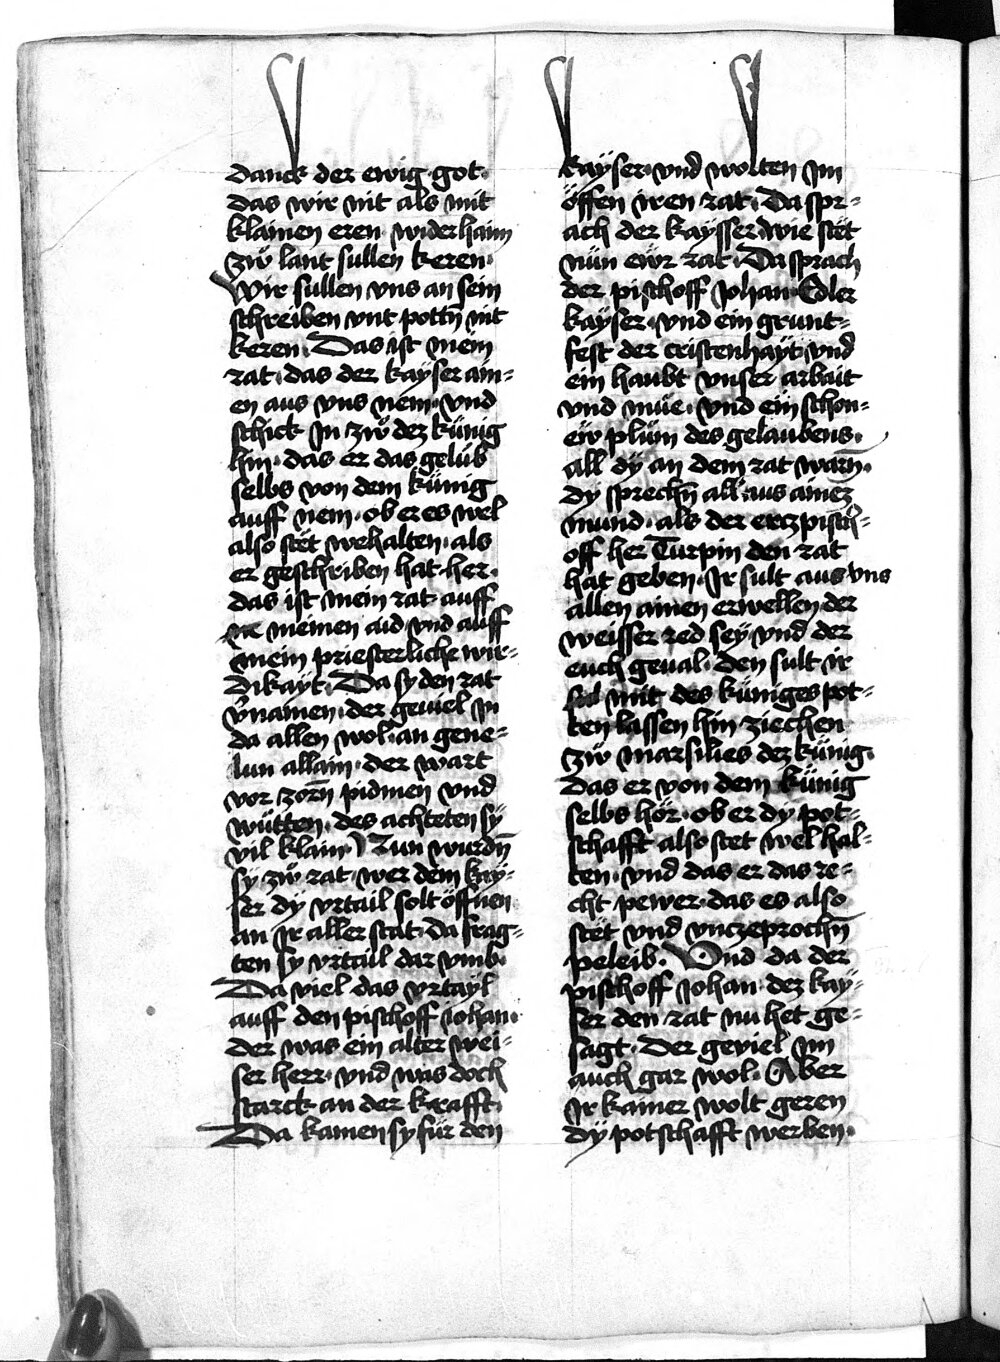 danck der ewig got·
das wir nit als mit
klainen eren· widerhaim
zw̋ lant sullen keren·
Wir sullen vns an sein
schreiben vnt pottn̄ nit
keren· Das ist mein
rat· das der kayser ain-
en aus vns nem· vnd
schick In zw̋ dez künig
hin· das er das gelüb
selbs von dem künig
auff nem· ob er es wel
also stët wehalten· als
er geschriben hat her·
das ist mein rat auff
meinen aid vnd auff
mein priesterliche wir-
dikayt· Da sy den rat
v̈namen· der geviel In
da allen wol· an gene-
lun allain· der wart
vor zorn pidmen vnd
wütten· des achteten sÿ
vil klain· Nun wurdn̄
sy zw̋ rat· wer dem kaÿ-
ser dÿ vrtail solt öffnen
an Ir aller stat· da frag-
ten sy vrtail dar vmb·
Da viel das vrtayl
auff den pischoff Johan·
der was ein alter wei-
ser herr· vnd was doch
starck an der krafft·
Da kamen sy für den
kaÿser· vnd wolten Im
öffen iren rat· Da spr-
ach der kaÿsser wie stët
nün ewr rat· Da sprach
der pischoff Johan· Edler
kaÿser· vnd ein grunt-
fest der cristenhaÿt vnd
ein haubt vnser arbait
vnd müe· vnd ein schon-
ew plüm des gelaubens·
all dÿ an dem rat warn̄·
dÿ sprechn̄ all aus ainez
mund· als der erczpisch-
off her Turpin den rat
hat geben· Ir sult aus vns
allen ainen erwellen der
weisser red seÿ vnd der
euch geual· den sult ir
mit des küniges pot-
ten lassen hin ziechen
zw̋ marsilies dez künig·
das er von dem künig
selbs hör· ob er dÿ pot-
schafft also stet wel hal-
ten· vnd das er das re-
cht pewer· das es also
stët vnd vnczeprochn̄
peleib· Vnd da der
pischoff Johan dez kaÿ-
ser den rat nu het ge-
sagt· Der geviel im
auch gar wol· Aber
Ir kainer wolt geren
dÿ potschafft werben·